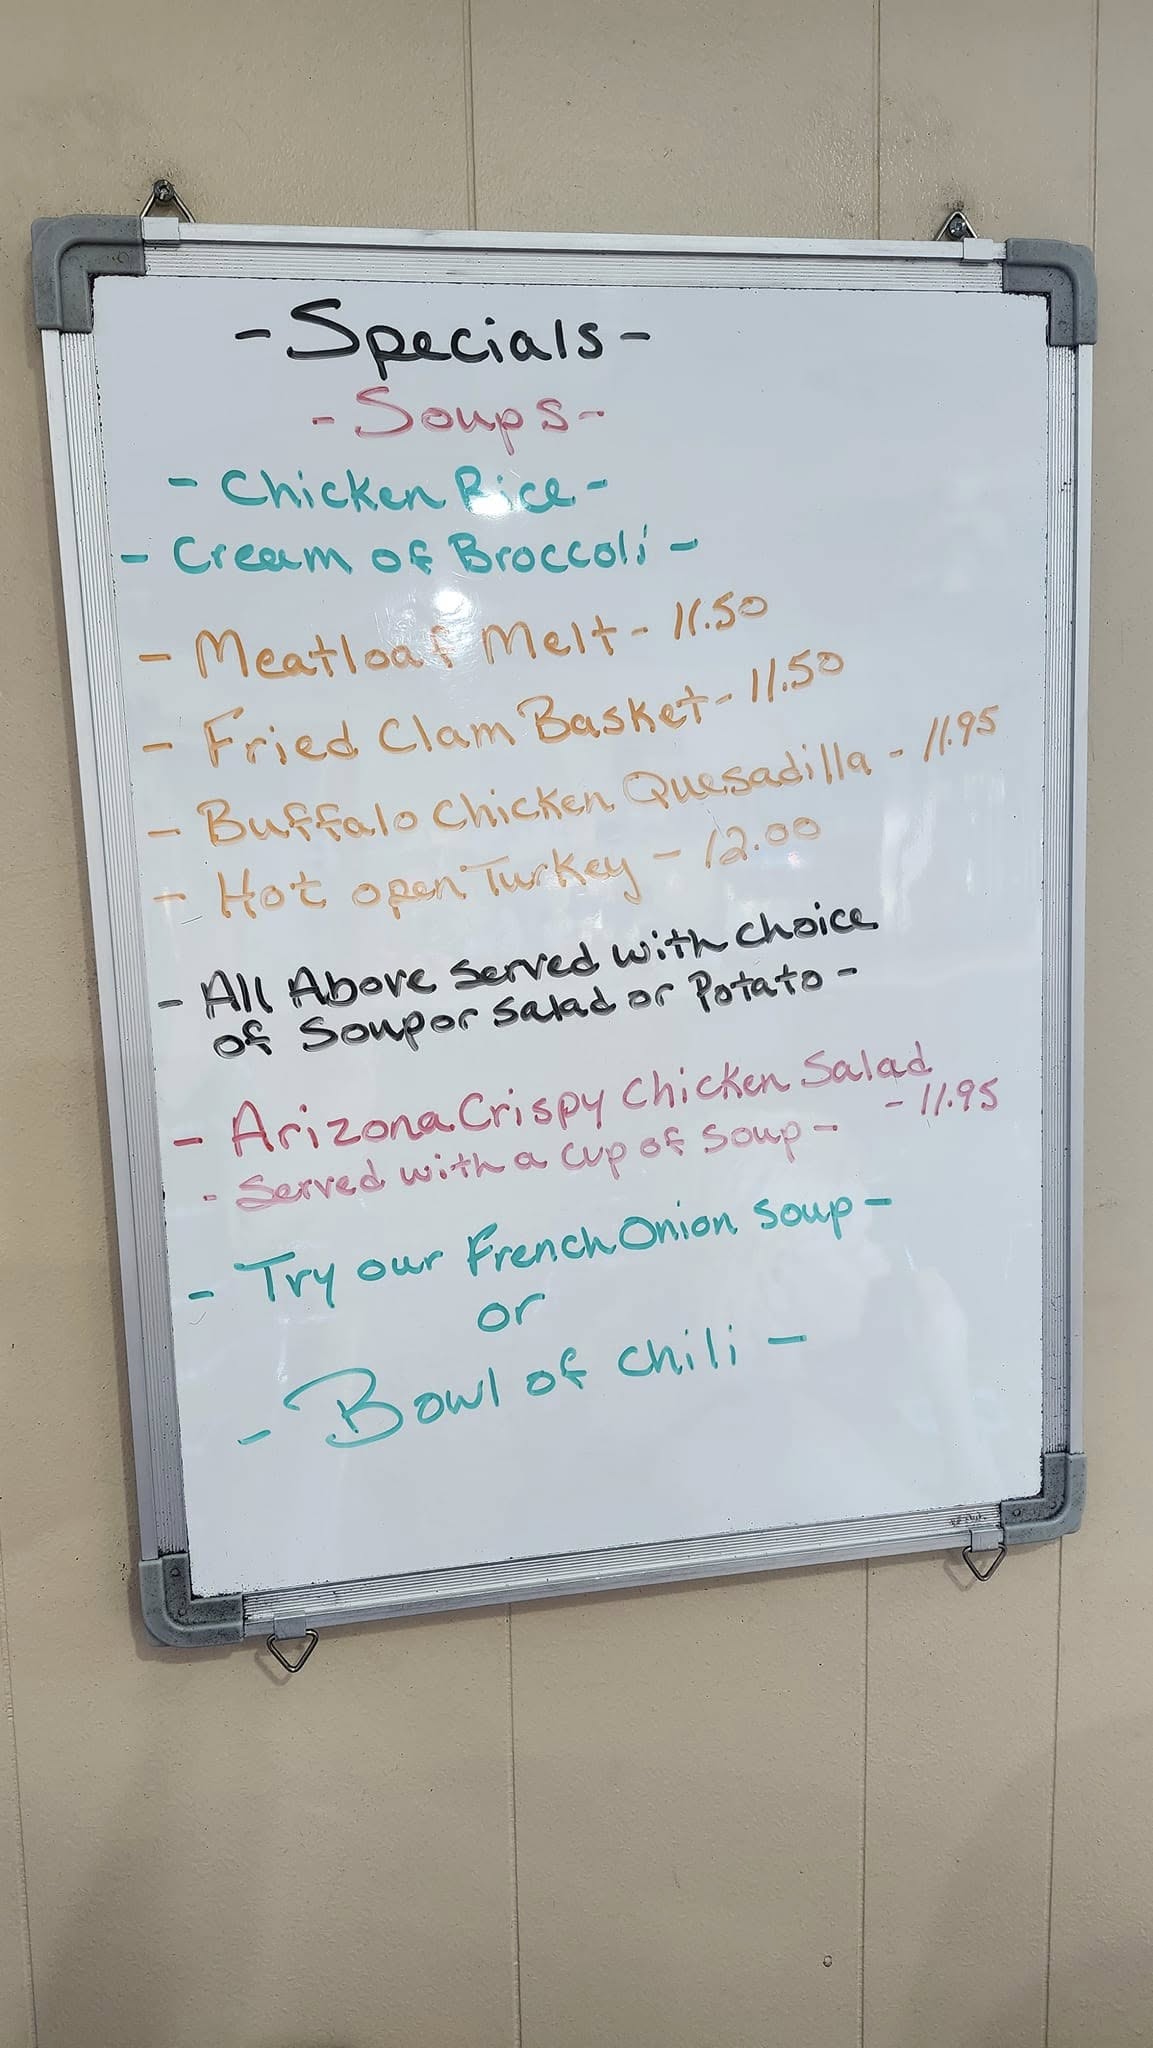 - Specials -
- Soups -
- Chicken Rice -
- Cream of Broccoli -
- Meatloaf Melt - 11.50
- Fried Clam Basket - 11.50
- Buffalo Chicken Quesadilla - 11.95
- Hot open Turkey - 12.00
- All Above Served with choice
of Soup or Salad or Potato -
- Arizona Crispy Chicken Salad
- 11.95
- Served with a cup of soup -
- Try our French Onion soup -
or
- Bowl of chili -